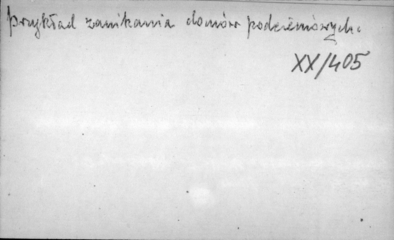 przykład zanikania domów podcieniowych.
XX/405